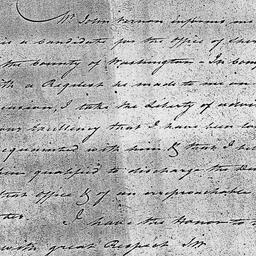 Mr John Vernon informs me
is a candidate for the Office of Sher
the County of Washington - In Com
th a Request he made to me on
I take the liberty of advis
our Excellency that I have been lon
acquainted with him & that I bel
been qualified to discharge the Du
that office & of an unreproachable
I have the Honor to
with great Respect Sir